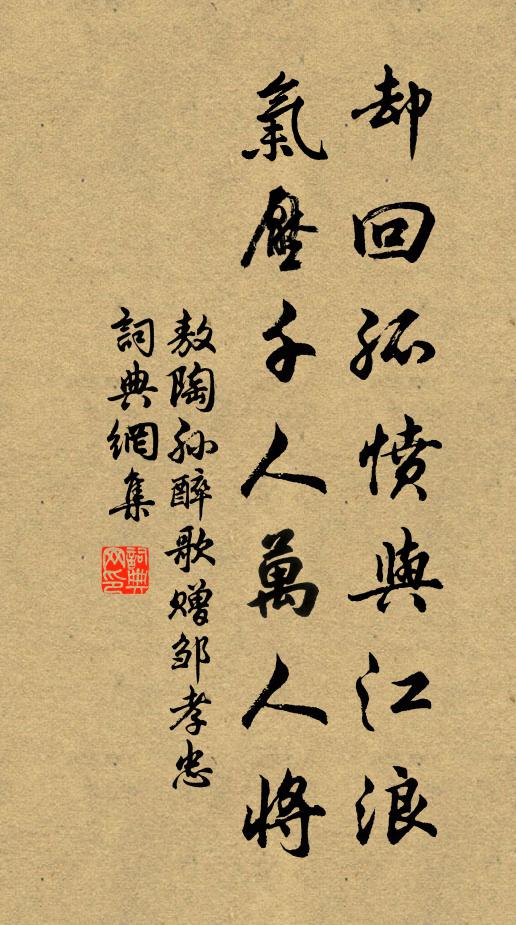 却回孤憤與江浪
氣壓千人萬人將
敖陶孫醉歌贈邹孝忠
詞典網集
詞典网印